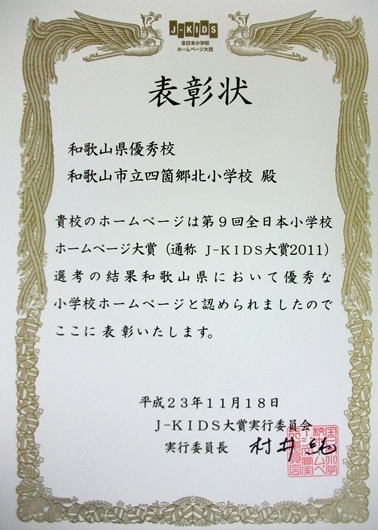 J-KIDS
全日本小学校
ホームページ大賞
表彰状
和歌山県優秀校
和歌山市立四箇郷北小学校 殿
貴校のホームページは第9回全日本小学校
ホームページ大賞（通称 J-KIDS大賞2011）
選考の結果和歌山県において優秀な
小学校ホームページと認められましたので
ここに表彰いたします。
平成23年11月18日
J-KIDS大賞実行委員会
実行委員長 村井純